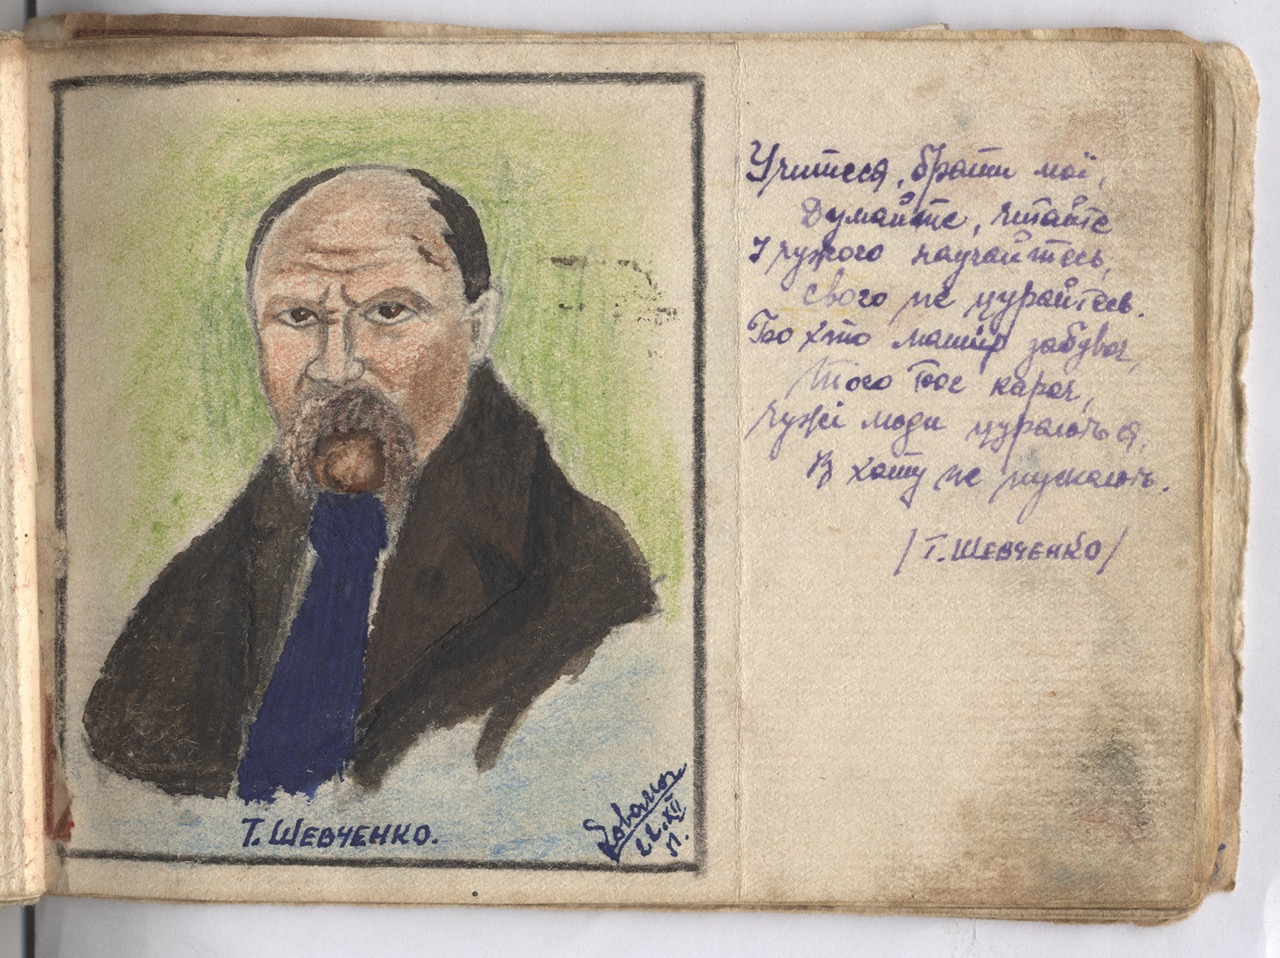 Т. ШЕВЧЕНКО.
22.XII
51.
Учитеся, брати мої,
Думайте, читайте
І чужого научайтесь,
Свого не цурайтесь.
Бо хто матір забуває,
Того бог карає,
Чужі люди цураються,
В хату не пускають.
/Т. ШЕВЧЕНКО/